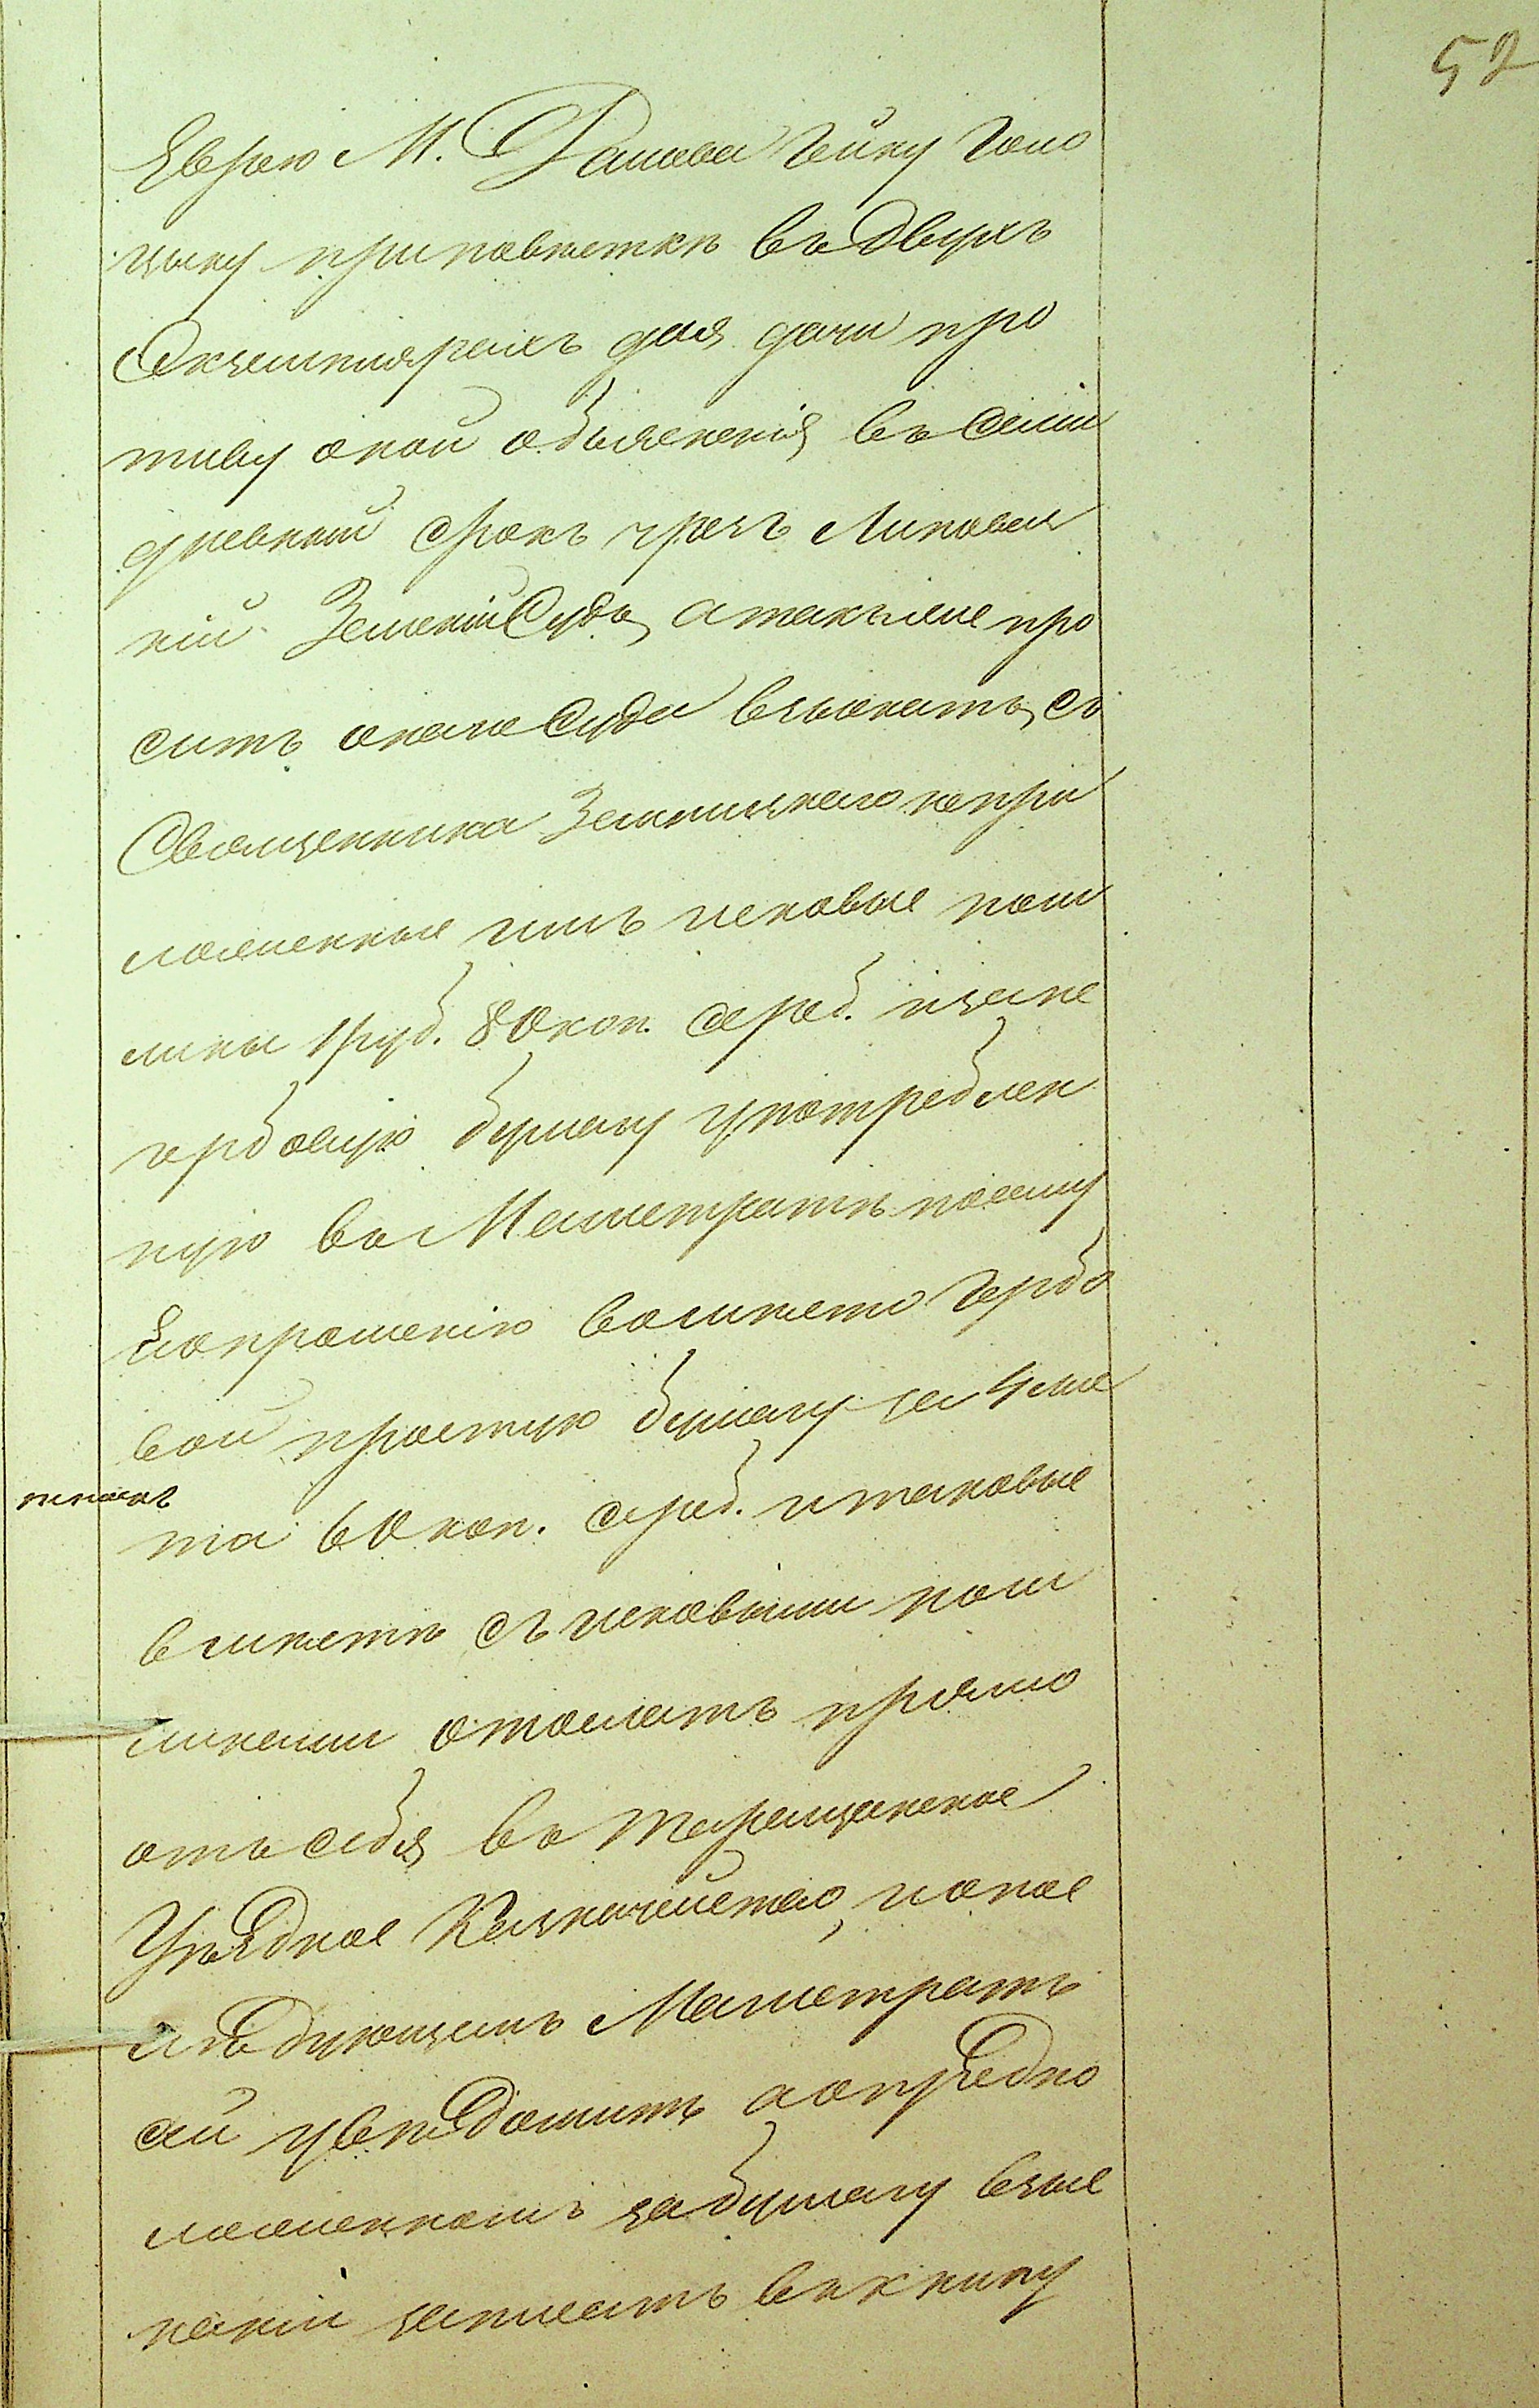 52
Еврею М. Рашева Гейну Гано
цкому при повѣстки въ двухъ
Экземплярахъ для дачи про
тиву оной объясненія въ семи
дневный срокъ чрезъ Липовец
кій Земскій Судъ, а такъ же про
ситъ онаго Суда взыскать съ
Священника Земницкаго непри
ложенные имъ исковые пош
лины 1 руб. 80 коп. сереб. и за не
гербовую бумагу употреблен
ную въ Магистратѣ по сему
Его прошенію вмѣсто гербо
вой простую бумагу за 4 лис
та 60 коп. сереб. и таковые
вмѣстѣ съ исковыми пош
линами отослать прямо
отъ себя въ Таращанское
Уѣздное Казначейство, и о по
слѣдующемъ Магистратъ
сей увѣдомить а о предпо
ложенномъ за бумагу взыс
каніи записать въ книгу